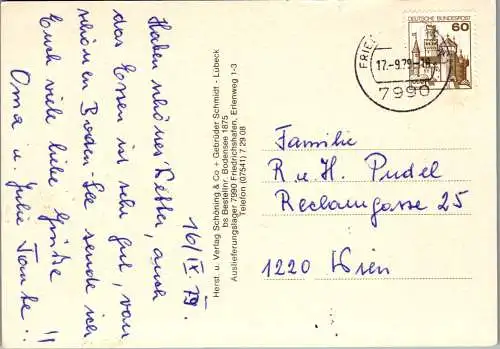 16/IX 79.
Haben schönes Wetter, auch
das Essen ist sehr gut, vom
schönen Boden-See sende ich
Euch viele liebe Grüße
Oma u. Julie Tante!!
Herst. u. Verlag Schöning & Co + Gebrüder Schmidt - Lübeck
bs Bestellnr. Bodensee 1875
Auslieferungslager 7990 Friedrichshafen, Erlenweg 1-3
Telefon (07541) 7 29 08
DEUTSCHE BUNDESPOST
60
FRIED
17.-9.79-18
7990
Familie
R. u. H. Pudel
Reclamgasse 25
1220 Wien